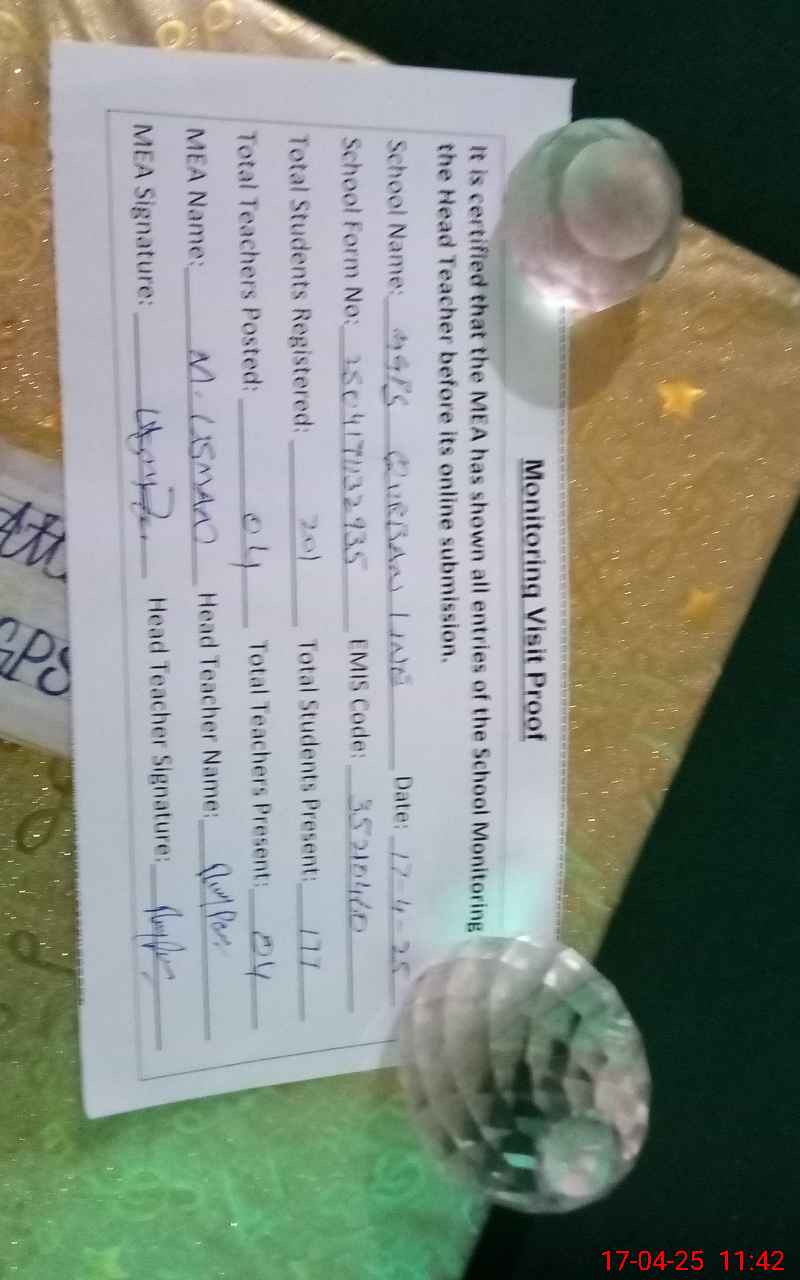 Monitoring Visit Proof
It is certified that the MEA has shown all entries of the School Monitoring
the Head Teacher before its online submission.
School Name: GGPS QURBAN LINE Date: 17-4-25
School Form No: EMIS Code: 35210460
Total Students Registered: 201 Total Students Present: 177
Total Teachers Posted: 04 Total Teachers Present: 04
MEA Name: M. USMAN Head Teacher Name:
MEA Signature: Head Teacher Signature:
GPS
17-04-25 11:42